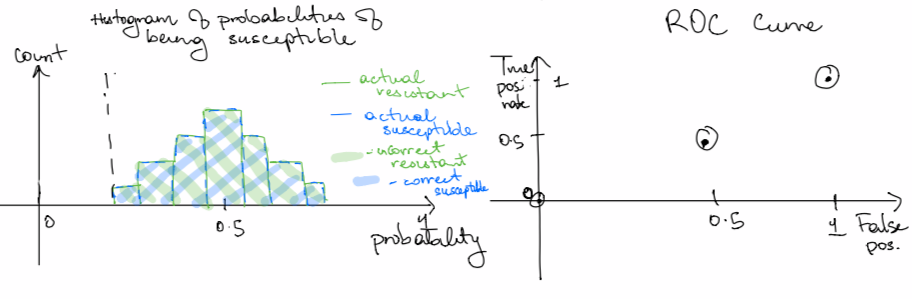 Histogram of probabilities of
being susceptible
count
actual
resistant
actual
susceptible
- incorrect
resistant
- correct
susceptible
0
0.5
1
probability
ROC Curve
True
pos.
rate
1
0.5
0
0.5
1
False
pos.